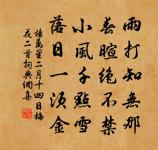 雨打知無那
春暄絕不禁
小風千點雪
落日一須金
楊萬里二月十四日梅
花二首詞典網集